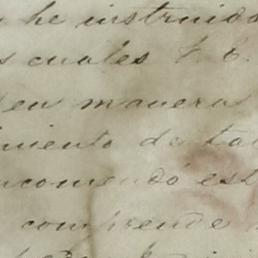 he instruido
s cuales V. E.
en maneras
imiento de ta
ncomendó est
comprende